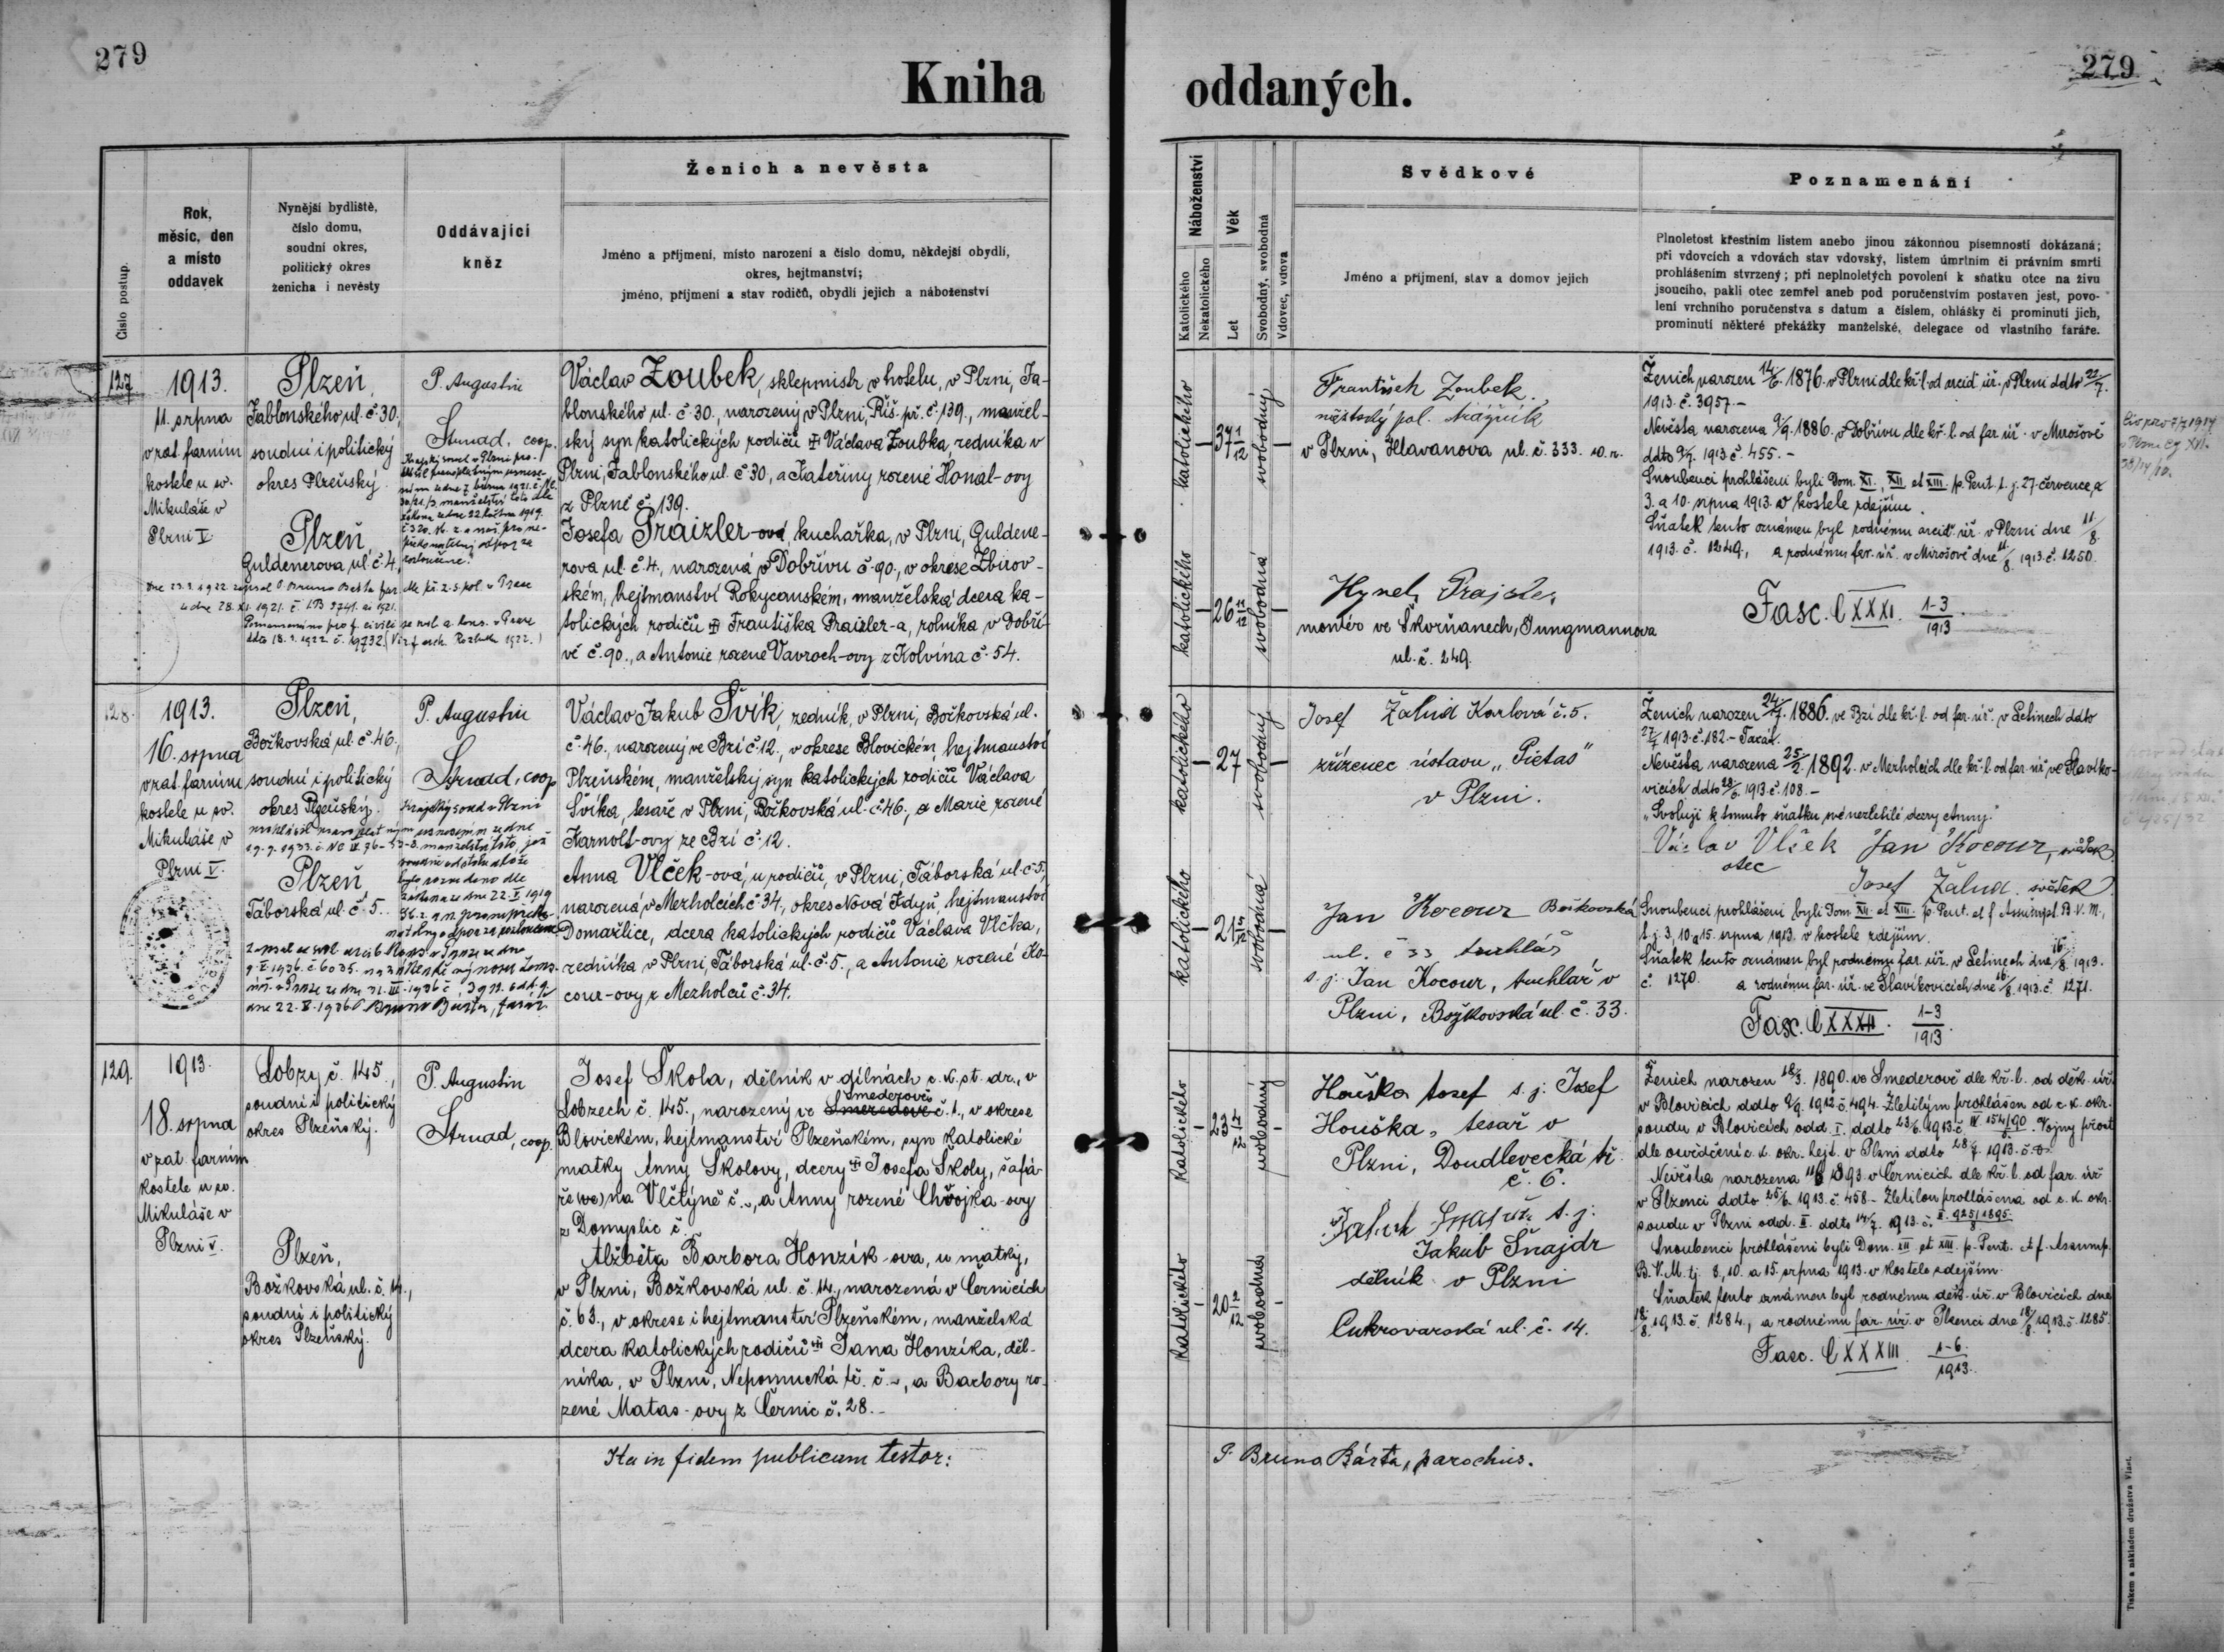 279
279
Kniha oddaných.
Číslo postup.
Rok,
měsíc, den
a místo
oddavek
Nynější bydliště,
číslo domu,
soudní okres,
politický okres
ženicha i nevěsty
Oddávající
kněz
Ženich a nevěsta
Jméno a příjmení, místo narození a číslo domu, někdejší obydlí,
okres, hejtmanství;
jméno, příjmení a stav rodičů, obydlí jejich a náboženství
Náboženství
Katolického
Nekatolického
Věk
Let
Svobodný, svobodná
Vdovec, vdova
Svědkové
Jméno a příjmení, stav a domov jejich
Poznamenání
Plnoletost křestním listem anebo jinou zákonnou písemností dokázaná;
při vdovcích a vdovách stav vdovský, listem úmrtním či právním smrti
prohlášením stvrzený; při neplnoletých povolení k sňatku otce na živu
jsoucího, pakli otec zemřel aneb pod poručenstvím postaven jest, povo-
lení vrchního poručenstva s datum a číslem, ohlášky či prominutí jich,
prominutí některé překážky manželské, delegace od vlastního faráře.
127
1913.
11. srpna
v rat. farním
kostele u sv.
Mikuláše v
Plzni V.
Plzeň,
Jablonského ul. č. 30,
soudní i politický
okres Plzeňský.
Plzeň,
Guldenerova ul. č. 4.
P. Augustin
Strnad, coop.
Václav Zoubek, sklepmistr v hotelu, v Plzni, Ja-
blonského ul. č. 30., narozený v Plzni, Říš. př. č. 139., manžel-
ský syn katolických rodičů Václava Zoubka, řezníka v
Plzni, Jablonského ul. č. 30, a Kateřiny rozené Honal-ovy
z Plzně č. 139.
Josefa Praizler-ová, kuchařka, v Plzni, Guldene-
rova ul. č. 4., narozená v Dobřívu č. 90., v okrese Zbirov-
ském, hejtmanství Rokycanském, manželská dcera ka-
tolických rodičů Františka Praizler-a, rolníka v Dobří-
vě č. 90., a Antonie rozené Vavroch-ovy z Kolvína č. 54.
katolického
37 1/12
svobodný
katolického
26 11/12
svobodná
František Zoubek
v Plzni, Hlavanova ul. č. 333.
Hynek Prajzler,
montér ve Škvrňanech, Jungmannova
ul. č. 249.
Ženich narozen 14/6. 1876. v Plzni dle kř. l. od arcid. úř. v Plzni ddto 22/7.
1913. č. 3957.-
Nevěsta narozena 9/9. 1886. v Dobřívu dle kř. l. od far. úř. v Mirošově
ddto 9/7. 1913 č. 455.-
Snoubenci prohlášeni byli Dom. XI., XII. et XIII. p. Pent. t. j. 27. července, a
3. a 10. srpna 1913. v kostele zdejším.
Sňatek tento oznámen byl rodnému arcid. úř. v Plzni dne 11/8.
1913. č. 1249., a rodnému far. úř. v Mirošově dne 11/8. 1913. č. 1250.
Fasc. CXXXI. 1-3/1913.
128.
1913.
16. srpna
v rat. farním
kostele u sv.
Mikuláše v
Plzni V.
Plzeň,
Božkovská ul. č. 46.,
soudní i politický
okres Plzeňský.
Plzeň,
Táborská ul. č. 5.
P. Augustin
Strnad, coop
Václav Jakub Švík, řezník, v Plzni, Božkovská ul.
č. 46., narozený ve Bzí č. 12., v okrese Blovickém, hejtmanství
Plzeňském, manželský syn katolických rodičů Václava
Švíka, tesaře v Plzni, Božkovská ul. č. 46., a Marie rozené
Karnolt-ovy ze Bzí č. 12.
Anna Vlček-ová, u rodičů, v Plzni, Táborská ul. č. 5,
narozená v Mezholcích č. 34., okres Nová Kdyň, hejtmanství
Domažlice, dcera katolických rodičů Václava Vlčka,
řezníka v Plzni, Táborská ul. č. 5., a Antonie rozené Ko-
cour-ovy z Mezholců č. 34.
katolického
27
svobodný
katolického
svobodná
Josef Žalud Karlová č. 5.
zřízenec ústavu „Pietas"
v Plzni.
Jan Kocour Božkovská
ul. č 33 truhlář
s. j. Jan Kocour, truhlář v
Plzni, Božkovská ul. č. 33.
Ženich narozen 24/7. 1886. ve Bzí dle kř. l. od far. úř. v Letinech ddto
27/7 1913. č. 182.-
Nevěsta narozena 25/2. 1892. v Mezholcích dle kř. l. od far. úř. ve Slavíko-
vicích ddto 28/6. 1913. č. 108.-
„Svoluji k tomuto sňatku své nezletilé dcery Anny."
Václav Vlček Jan Kocour, svědek
otec
Josef Žalud. svědek
Snoubenci prohlášeni byli Dom. XII. et XIII. p. Pent. et f. Assumpt. B. V. M.,
t. j. 3., 10. a 15. srpna 1913. v kostele zdejším.
Sňatek tento oznámen byl rodnému far. úř. v Letinech dne 16/8. 1913.
č. 1270. a rodnému far. úř. ve Slavíkovicích dne 16/8. 1913. č. 1271.
Fasc. CXXXII. 1-3/1913.
129.
1913.
18. srpna
v rat. farním
kostele u sv.
Mikuláše v
Plzni V.
Lobzy č. 145.,
soudní i politický
okres Plzeňský.
Plzeň,
Božkovská ul. č. 14.,
soudní i politický
okres Plzeňský.
P. Augustin
Strnad, coop.
Josef Škola, dělník v dílnách c. k. st. dr., v
Smederově
Lobzech č. 145., narozený ve č. 1., v okrese
Blovickém, hejtmanství Plzeňském, syn katolické
matky Anny Školovy, dcery Josefa Školy, šafá-
ře na Vlčtýně č. -, a Anny rozené Chvojka-ovy
z Domyslic č.
Alžběta Barbora Honzík-ova, u matky,
v Plzni, Božkovská ul. č. 14., narozená v Černicích
č. 63., v okrese i hejtmanství Plzeňském, manželská
dcera katolických rodičů Jana Honzíka, děl-
níka, v Plzni, Nepomucká tř. č. -, a Barbory ro-
zené Matas-ovy z Černic č. 28.-
katolického
23 5/12
svobodný
katolického
20 2/12
svobodná
Houška Josef s. j. Josef
Houška, tesař v
Plzni, Doudlevecká tř.
č. 6.
Jakub Šnajdr s. j.
Jakub Šnajdr
dělník v Plzni
Cukrovarská ul. č. 14.
Ženich narozen 18/3. 1890. ve Smederově dle kř. l. od děk. úř.
v Blovicích ddto 9/9. 1912. č. 494. Zletilým prohlášen od c. k. okr.
soudu v Blovicích odd. I. ddto 23/6. 1913. č. Vojny prost
dle osvědčení c. k. okr. hejt. v Plzni ddto 28/7. 1913. č.
Nevěsta narozena 1893. v Černicích dle kř. l. od far. úř.
v Plzenci ddto 25/6. 1913. č. 458.- Zletilou prohlášena od c. k. okr.
soudu v Plzni odd. II. ddto 14/7. 1913. č.
Snoubenci prohlášeni byli Dom. XII. et XIII. p. Pent. et f. Assump.
B. V. M. tj. 3., 10. a 15. srpna 1913. v kostele zdejším.
Sňatek tento oznámen byl rodnému děk. úř. v Blovicích dne
18/8. 1913. č. 1284., a rodnému far. úř. v Plzenci dne 18/8. 1913. č. 1285.
Fasc. CXXXIII. 1-6/1913.
Ita in fidem publicam testor:
P. Bruno Bárta, parochus.
Tiskem a nákladem družstva Vlasť.